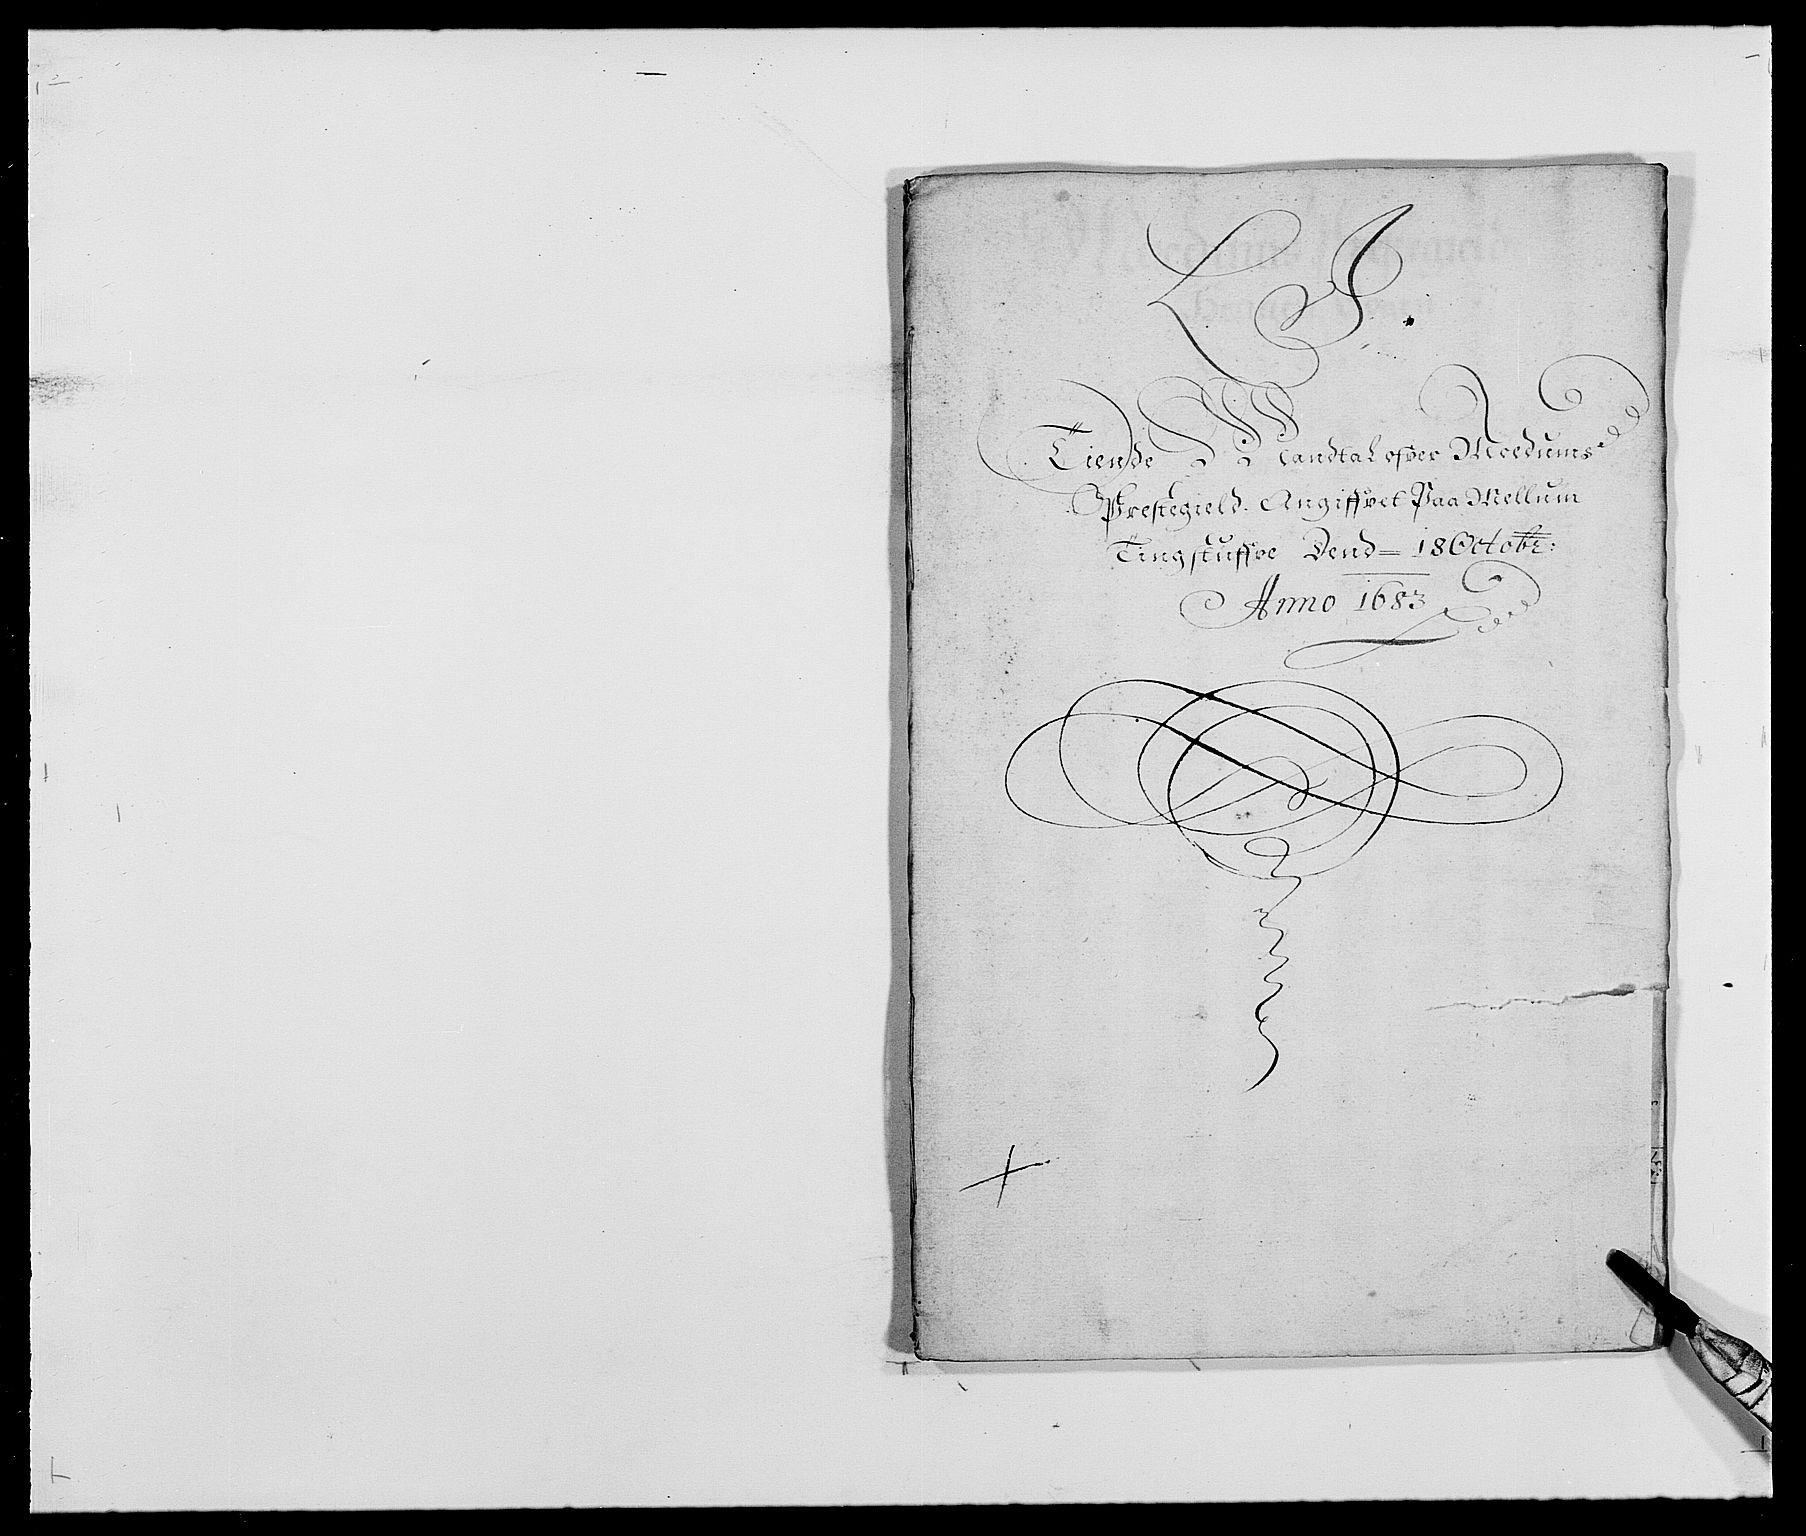 L A.
Tiende Mandtal ofver Moedums
Prestegield. Angiffvet Paa Mellum
Tingstuffve Dend = 18 Octobr:
Anno 1683